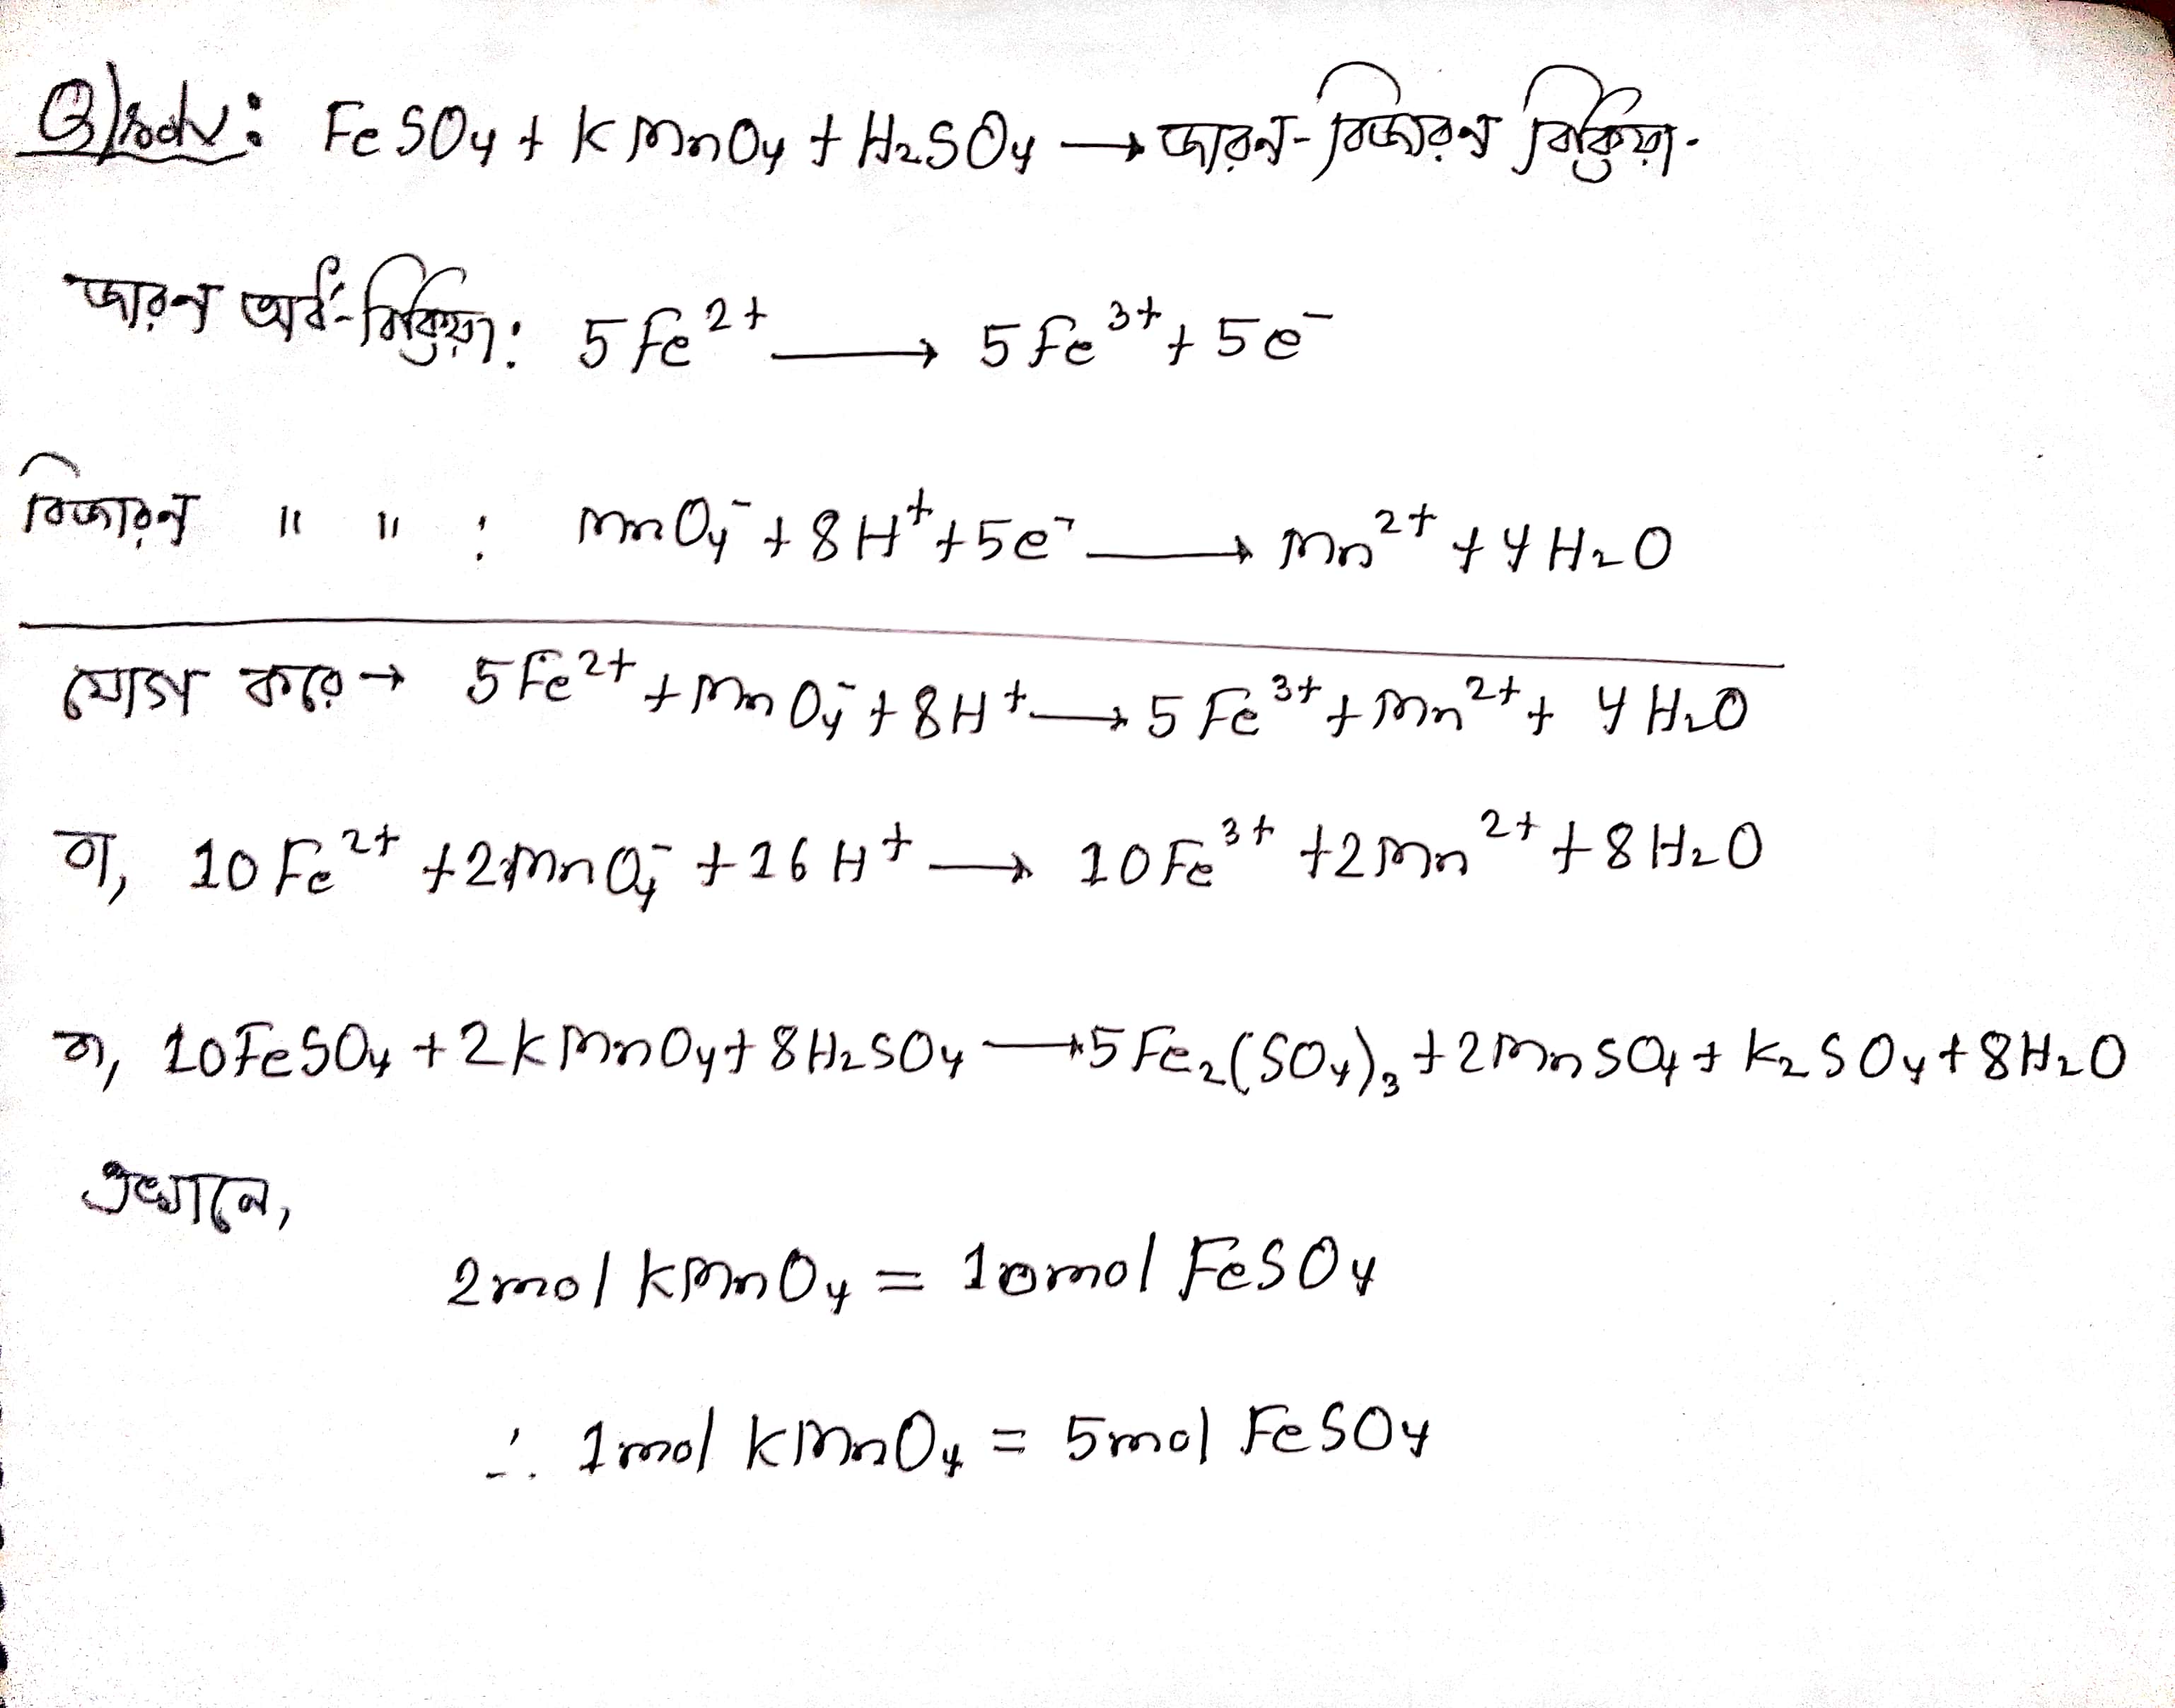 Q/solv: FeSO₄ + KMnO₄ + H₂SO₄ → জারন-বিজারন বিক্রিয়া.
জারন অর্ধ-বিক্রিয়া: 5Fe²⁺ → 5Fe³⁺ + 5e⁻
বিজারন " " : MnO₄⁻ + 8H⁺ + 5e⁻ → Mn²⁺ + 4H₂O
যোগ করে → 5Fe²⁺ + MnO₄⁻ + 8H⁺ → 5Fe³⁺ + Mn²⁺ + 4H₂O
বা, 10Fe²⁺ + 2MnO₄⁻ + 16H⁺ → 10Fe³⁺ + 2Mn²⁺ + 8H₂O
বা, 10FeSO₄ + 2KMnO₄ + 8H₂SO₄ → 5Fe₂(SO₄)₃ + 2MnSO₄ + K₂SO₄ + 8H₂O
এখানে,
2mol KMnO₄ = 10mol FeSO₄
∴ 1mol KMnO₄ = 5mol FeSO₄